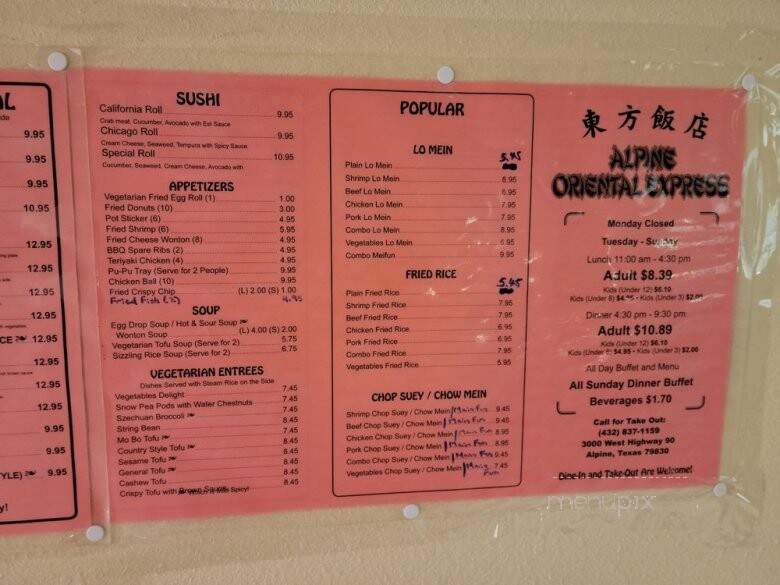 AL
9.95
9.95
9.95
10.95
12.95
12.95
12.95
12.95
12.95
12.95
12.95
9.95
9.95
9.95
STYLE) 9.95
y!
SUSHI
California Roll 9.95
Crab meat, Cucumber, Avocado with Eel Sauce
Chicago Roll 9.95
Cream Cheese, Seaweed, Tempura with Spicy Sauce
Special Roll 10.95
Cucumber, Seaweed, Cream Cheese, Avocado with
APPETIZERS
Vegetarian Fried Egg Roll (1) 1.00
Fried Donuts (10) 3.00
Pot Sticker (6) 4.95
Fried Shrimp (6) 5.95
Fried Cheese Wonton (8) 4.95
BBQ Spare Ribs (2) 4.95
Teriyaki Chicken (4) 4.95
Pu-Pu Tray (Serve for 2 People) 9.95
Chicken Ball (10) 9.95
Fried Crispy Chip (L) 2.00 (S) 1.00
Fried Fish 4.95
SOUP
Egg Drop Soup / Hot & Sour Soup
Wonton Soup (L) 4.00 (S) 2.00
Vegetarian Tofu Soup (Serve for 2) 5.75
Sizzling Rice Soup (Serve for 2) 6.75
VEGETARIAN ENTREES
Dishes Served with Steam Rice on the Side
Vegetables Delight 7.45
Snow Pea Pods with Water Chestnuts 7.45
Szechuan Broccoli 7.45
String Bean 7.45
Mo Bo Tofu 8.45
Country Style Tofu 8.45
Sesame Tofu 8.45
General Tofu 8.45
Cashew Tofu 8.45
Crispy Tofu with Brown Sauce 8.45
POPULAR
LO MEIN
Plain Lo Mein 5.45
Shrimp Lo Mein 8.95
Beef Lo Mein 6.95
Chicken Lo Mein 7.95
Pork Lo Mein 7.95
Combo Lo Mein 8.95
Vegetables Lo Mein 6.95
Combo Meifun 9.95
FRIED RICE
Plain Fried Rice 5.45
Shrimp Fried Rice 7.95
Beef Fried Rice 7.95
Chicken Fried Rice 6.95
Pork Fried Rice 6.95
Combo Fried Rice 7.95
Vegetables Fried Rice 5.95
CHOP SUEY / CHOW MEIN
Shrimp Chop Suey / Chow Mein /Main Fun 9.45
Beef Chop Suey / Chow Mein /Main Fun 9.45
Chicken Chop Suey / Chow Mein /Main Fun 8.95
Pork Chop Suey / Chow Mein /Main Fun 8.95
Combo Chop Suey / Chow Mein /Main Fun 9.45
Vegetables Chop Suey / Chow Mein /Main Fun 7.45
東方飯店
ALPINE
ORIENTAL EXPRESS
Monday Closed
Tuesday - Sunday
Lunch 11:00 am - 4:30 pm
Adult $8.39
Kids (Under 12) $6.10
Kids (Under 8) $4.95 - Kids (Under 3) $2.00
Dinner 4:30 pm - 9:30 pm
Adult $10.89
Kids (Under 12) $6.10
Kids (Under 8) $4.95 - Kids (Under 3) $2.00
All Day Buffet and Menu
All Sunday Dinner Buffet
Beverages $1.70
Call for Take Out:
(432) 837-1159
3000 West Highway 90
Alpine, Texas 79830
Dine-In and Take-Out Are Welcome!
menupix